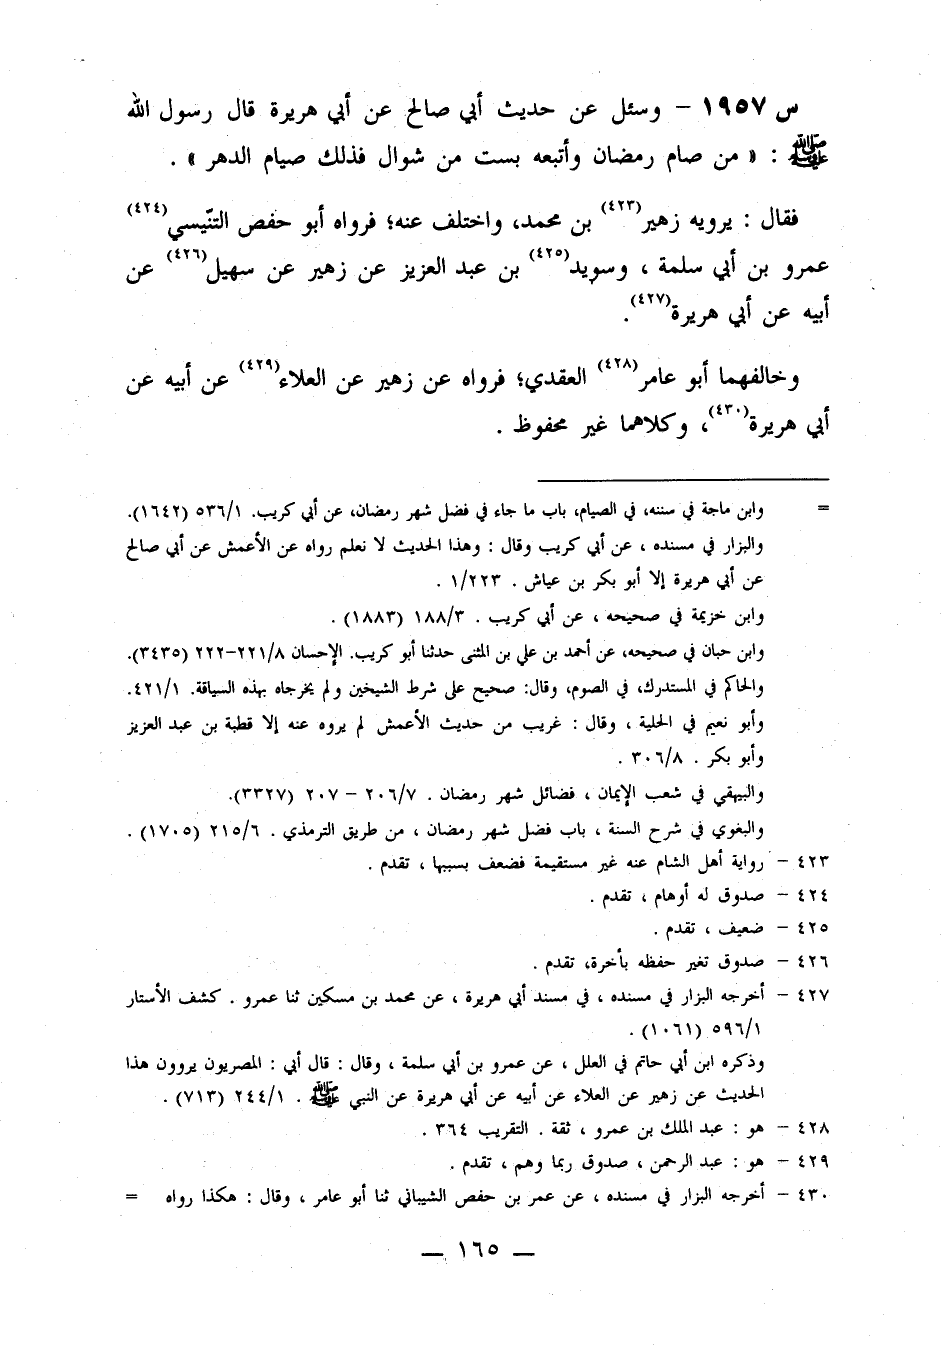 س ١٩٥٧ – وسئل عن حديث أبي صالح عن أبي هريرة قال رسول الله
ﷺ : « من صام رمضان وأتبعه بست من شوال فذلك صيام الدهر » .
فقال : يرويه زهير(٤٢٣) بن محمد، واختلف عنه؛ فرواه أبو حفص التنّيسي(٤٢٤)
عمرو بن أبي سلمة ، وسويد(٤٢٥) بن عبد العزيز عن زهير عن سهيل(٤٢٦) عن
أبيه عن أبي هريرة(٤٢٧).
وخالفهما أبو عامر(٤٢٨) العقدي؛ فرواه عن زهير عن العلاء(٤٢٩) عن أبيه عن
أبي هريرة(٤٣٠)، وكلاهما غير محفوظ .
= وابن ماجة في سننه، في الصيام، باب ما جاء في فضل شهر رمضان، عن أبي كريب. ٥٣٦/١ (١٦٤٢).
والبزار في مسنده ، عن أبي كريب وقال : وهذا الحديث لا نعلم رواه عن الأعمش عن أبي صالح
عن أبي هريرة إلا أبو بكر بن عياش . ١/٢٢٣ .
وابن خزيمة في صحيحه ، عن أبي كريب . ١٨٨/٣ (١٨٨٣) .
وابن حبان في صحيحه، عن أحمد بن علي بن المثنى حدثنا أبو كريب. الإحسان ٢٢١/٨–٢٢٢ (٣٤٣٥).
والحاكم في المستدرك، في الصوم، وقال: صحيح على شرط الشيخين ولم يخرجاه بهذه السياقة. ٤٢١/١.
وأبو نعيم في الحلية ، وقال : غريب من حديث الأعمش لم يروه عنه إلا قطبة بن عبد العزيز
وأبو بكر . ٣٠٦/٨ .
والبيهقي في شعب الإيمان ، فضائل شهر رمضان . ٢٠٦/٧ – ٢٠٧ (٣٣٢٧).
والبغوي في شرح السنة ، باب فضل شهر رمضان ، من طريق الترمذي . ٢١٥/٦ (١٧٠٥) .
٤٢٣ – رواية أهل الشام عنه غير مستقيمة فضعف بسببها ، تقدم .
٤٢٤ – صدوق له أوهام ، تقدم .
٤٢٥ – ضعيف ، تقدم .
٤٢٦ – صدوق تغير حفظه بأخرة، تقدم .
٤٢٧ – أخرجه البزار في مسنده ، في مسند أبي هريرة ، عن محمد بن مسكين ثنا عمرو . كشف الأستار
٥٩٦/١ (١٠٦١) .
وذكره ابن أبي حاتم في العلل ، عن عمرو بن أبي سلمة ، وقال : قال أبي : المصريون يروون هذا
الحديث عن زهير عن العلاء عن أبيه عن أبي هريرة عن النبي ﷺ . ٢٤٤/١ (٧١٣) .
٤٢٨ – هو : عبد الملك بن عمرو ، ثقة . التقريب ٣٦٤ .
٤٢٩ – هو : عبد الرحمن ، صدوق ربما وهم ، تقدم .
٤٣٠ – أخرجه البزار في مسنده ، عن عمر بن حفص الشيباني ثنا أبو عامر ، وقال : هكذا رواه =
— ١٦٥ —